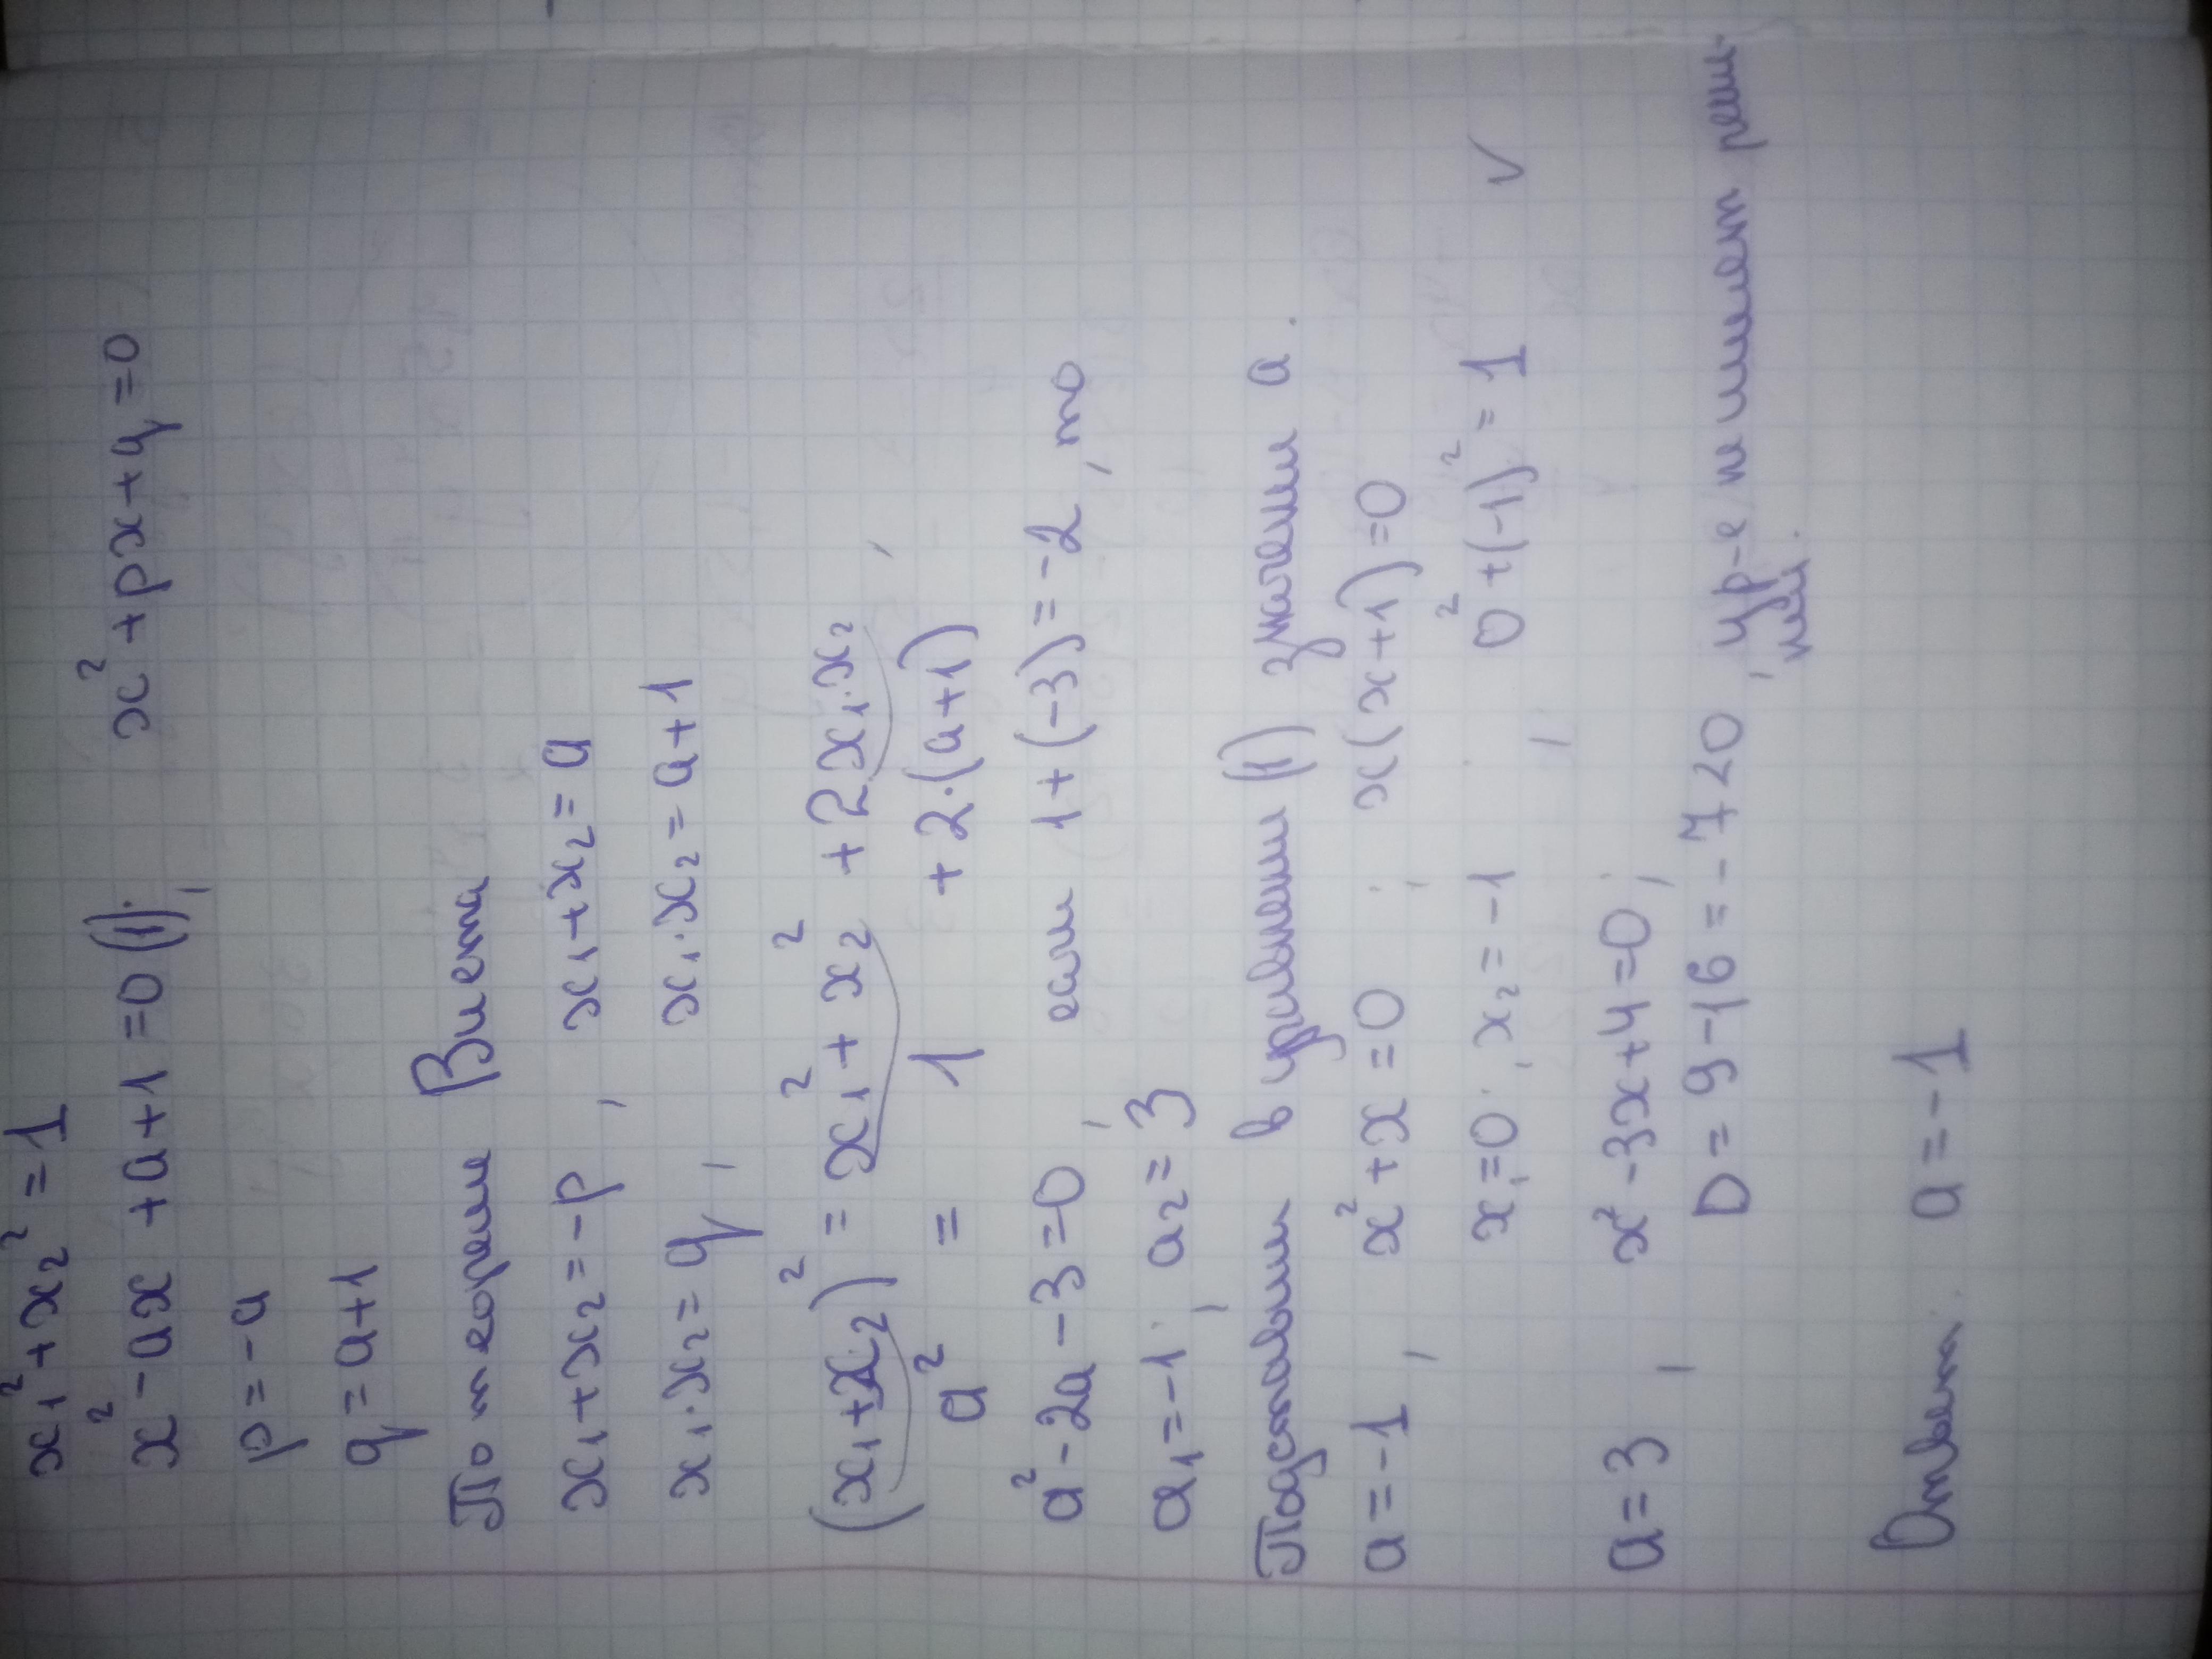 x₁² + x₂² = 1
x² - ax + a + 1 = 0 (1); x² + px + q = 0
p = -a
q = a + 1
По теореме Виета
x₁ + x₂ = -p, x₁ + x₂ = a
x₁ · x₂ = q, x₁ · x₂ = a + 1
(x₁ + x₂)² = x₁² + x₂² + 2x₁·x₂,
a² = 1 + 2·(a+1)
a² - 2a - 3 = 0, если 1 + (-3) = -2, то
a₁ = -1; a₂ = 3
Подставим в уравнении (1) значении a.
a = -1, x² + x = 0; x(x+1) = 0
x₁ = 0; x₂ = -1, 0² + (-1)² = 1 √
a = 3, x² - 3x + 4 = 0;
D = 9 - 16 = -7 < 0, ур-е не имеет реше-
ний.
Ответ: a = -1